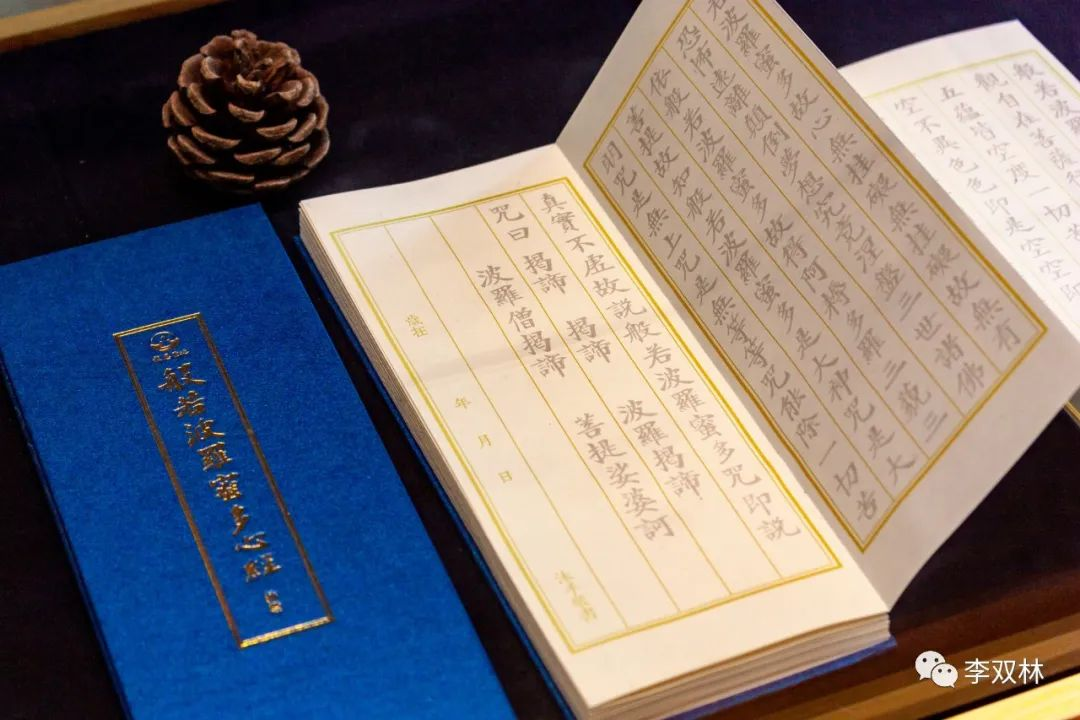 般若波羅蜜多心經
般若波羅
觀自在菩薩行
五蘊皆空度一切苦
空不異色色即是空空即
若波羅蜜多故心無挂礙無挂礙故無有
恐怖遠離顛倒夢想究竟涅盤三世諸佛
依般若波羅蜜多故得阿耨多羅三藐三
菩提故知般若波羅蜜多是大神咒是大
明咒是無上咒是無等等咒能除一切苦
真實不虛故說般若波羅蜜多咒即說
咒曰 揭諦 揭諦 波羅揭諦
波羅僧揭諦 菩提娑婆訶
歲在 年 月 日 沐手敬書
李双林